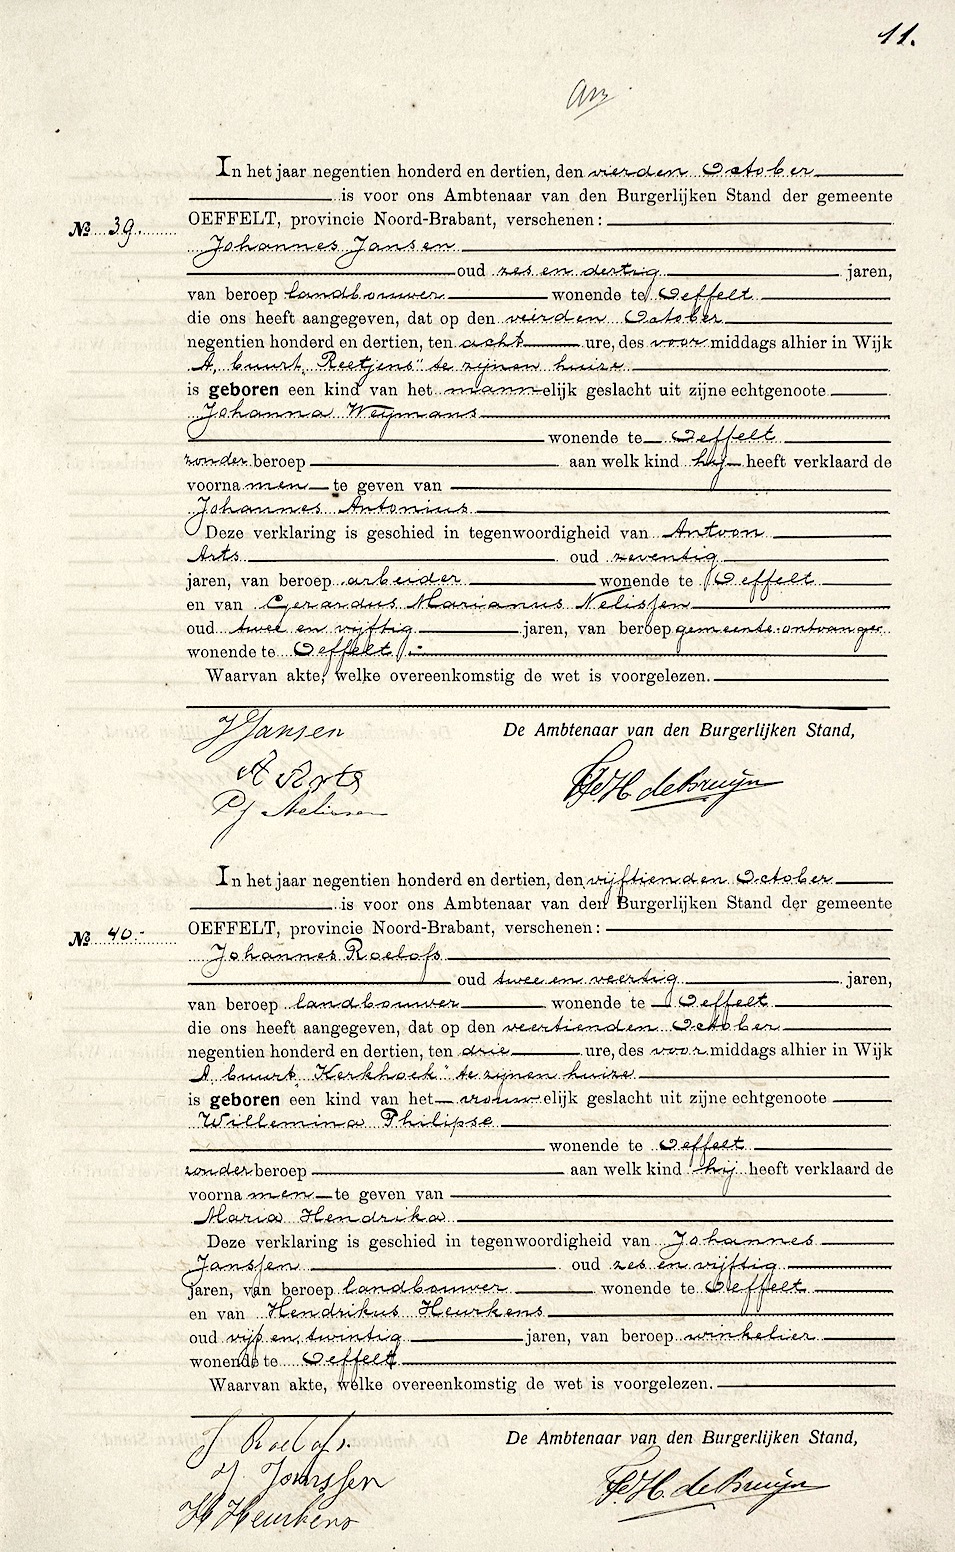 11.
In het jaar negentien honderd en dertien, den vierden October
is voor ons Ambtenaar van den Burgerlijken Stand der gemeente
OEFFELT, provincie Noord-Brabant, verschenen:
No 39.
Johannes Jansen
oud zes en dertig jaren,
van beroep landbouwer wonende te Oeffelt
die ons heeft aangegeven, dat op den veirden October
negentien honderd en dertien, ten acht ure, des voormiddags alhier in Wijk
A, buurt „Reetjens" te zijnen huize
is geboren een kind van het mannelijk geslacht uit zijne echtgenoote
Johanna Weijmans
wonende te Oeffelt
zonder beroep aan welk kind hij heeft verklaard de
voornamen te geven van
Johannes Antonius
Deze verklaring is geschied in tegenwoordigheid van Antoon
Arts oud zeventig
jaren, van beroep arbeider wonende te Oeffelt
en van Gerardus Marianus Nelissen
oud twee en vijftig jaren, van beroep gemeente-ontvanger
wonende te Oeffelt.
Waarvan akte, welke overeenkomstig de wet is voorgelezen.
J Jansen
De Ambtenaar van den Burgerlijken Stand,
A Arts
de Bruijn
Nelissen
In het jaar negentien honderd en dertien, den vijftienden October
is voor ons Ambtenaar van den Burgerlijken Stand der gemeente
OEFFELT, provincie Noord-Brabant, verschenen:
No 40.-
Johannes Roelofs
oud twee en veertig jaren,
van beroep landbouwer wonende te Oeffelt
die ons heeft aangegeven, dat op den veertienden October
negentien honderd en dertien, ten drie ure, des voormiddags alhier in Wijk
A, buurt „Kerkhoek" te zijnen huize
is geboren een kind van het vrouwelijk geslacht uit zijne echtgenoote
Willemina Philipse
wonende te Oeffelt
zonder beroep aan welk kind hij heeft verklaard de
voornamen te geven van
Maria Hendrika
Deze verklaring is geschied in tegenwoordigheid van Johannes
Janssen oud zes en vijftig
jaren, van beroep landbouwer wonende te Oeffelt
en van Hendrikus Heurkens
oud vijf en twintig jaren, van beroep winkelier
wonende te Oeffelt
Waarvan akte, welke overeenkomstig de wet is voorgelezen.
J Roelofs.
De Ambtenaar van den Burgerlijken Stand,
J. Janssen
de Bruijn
H Heurkens